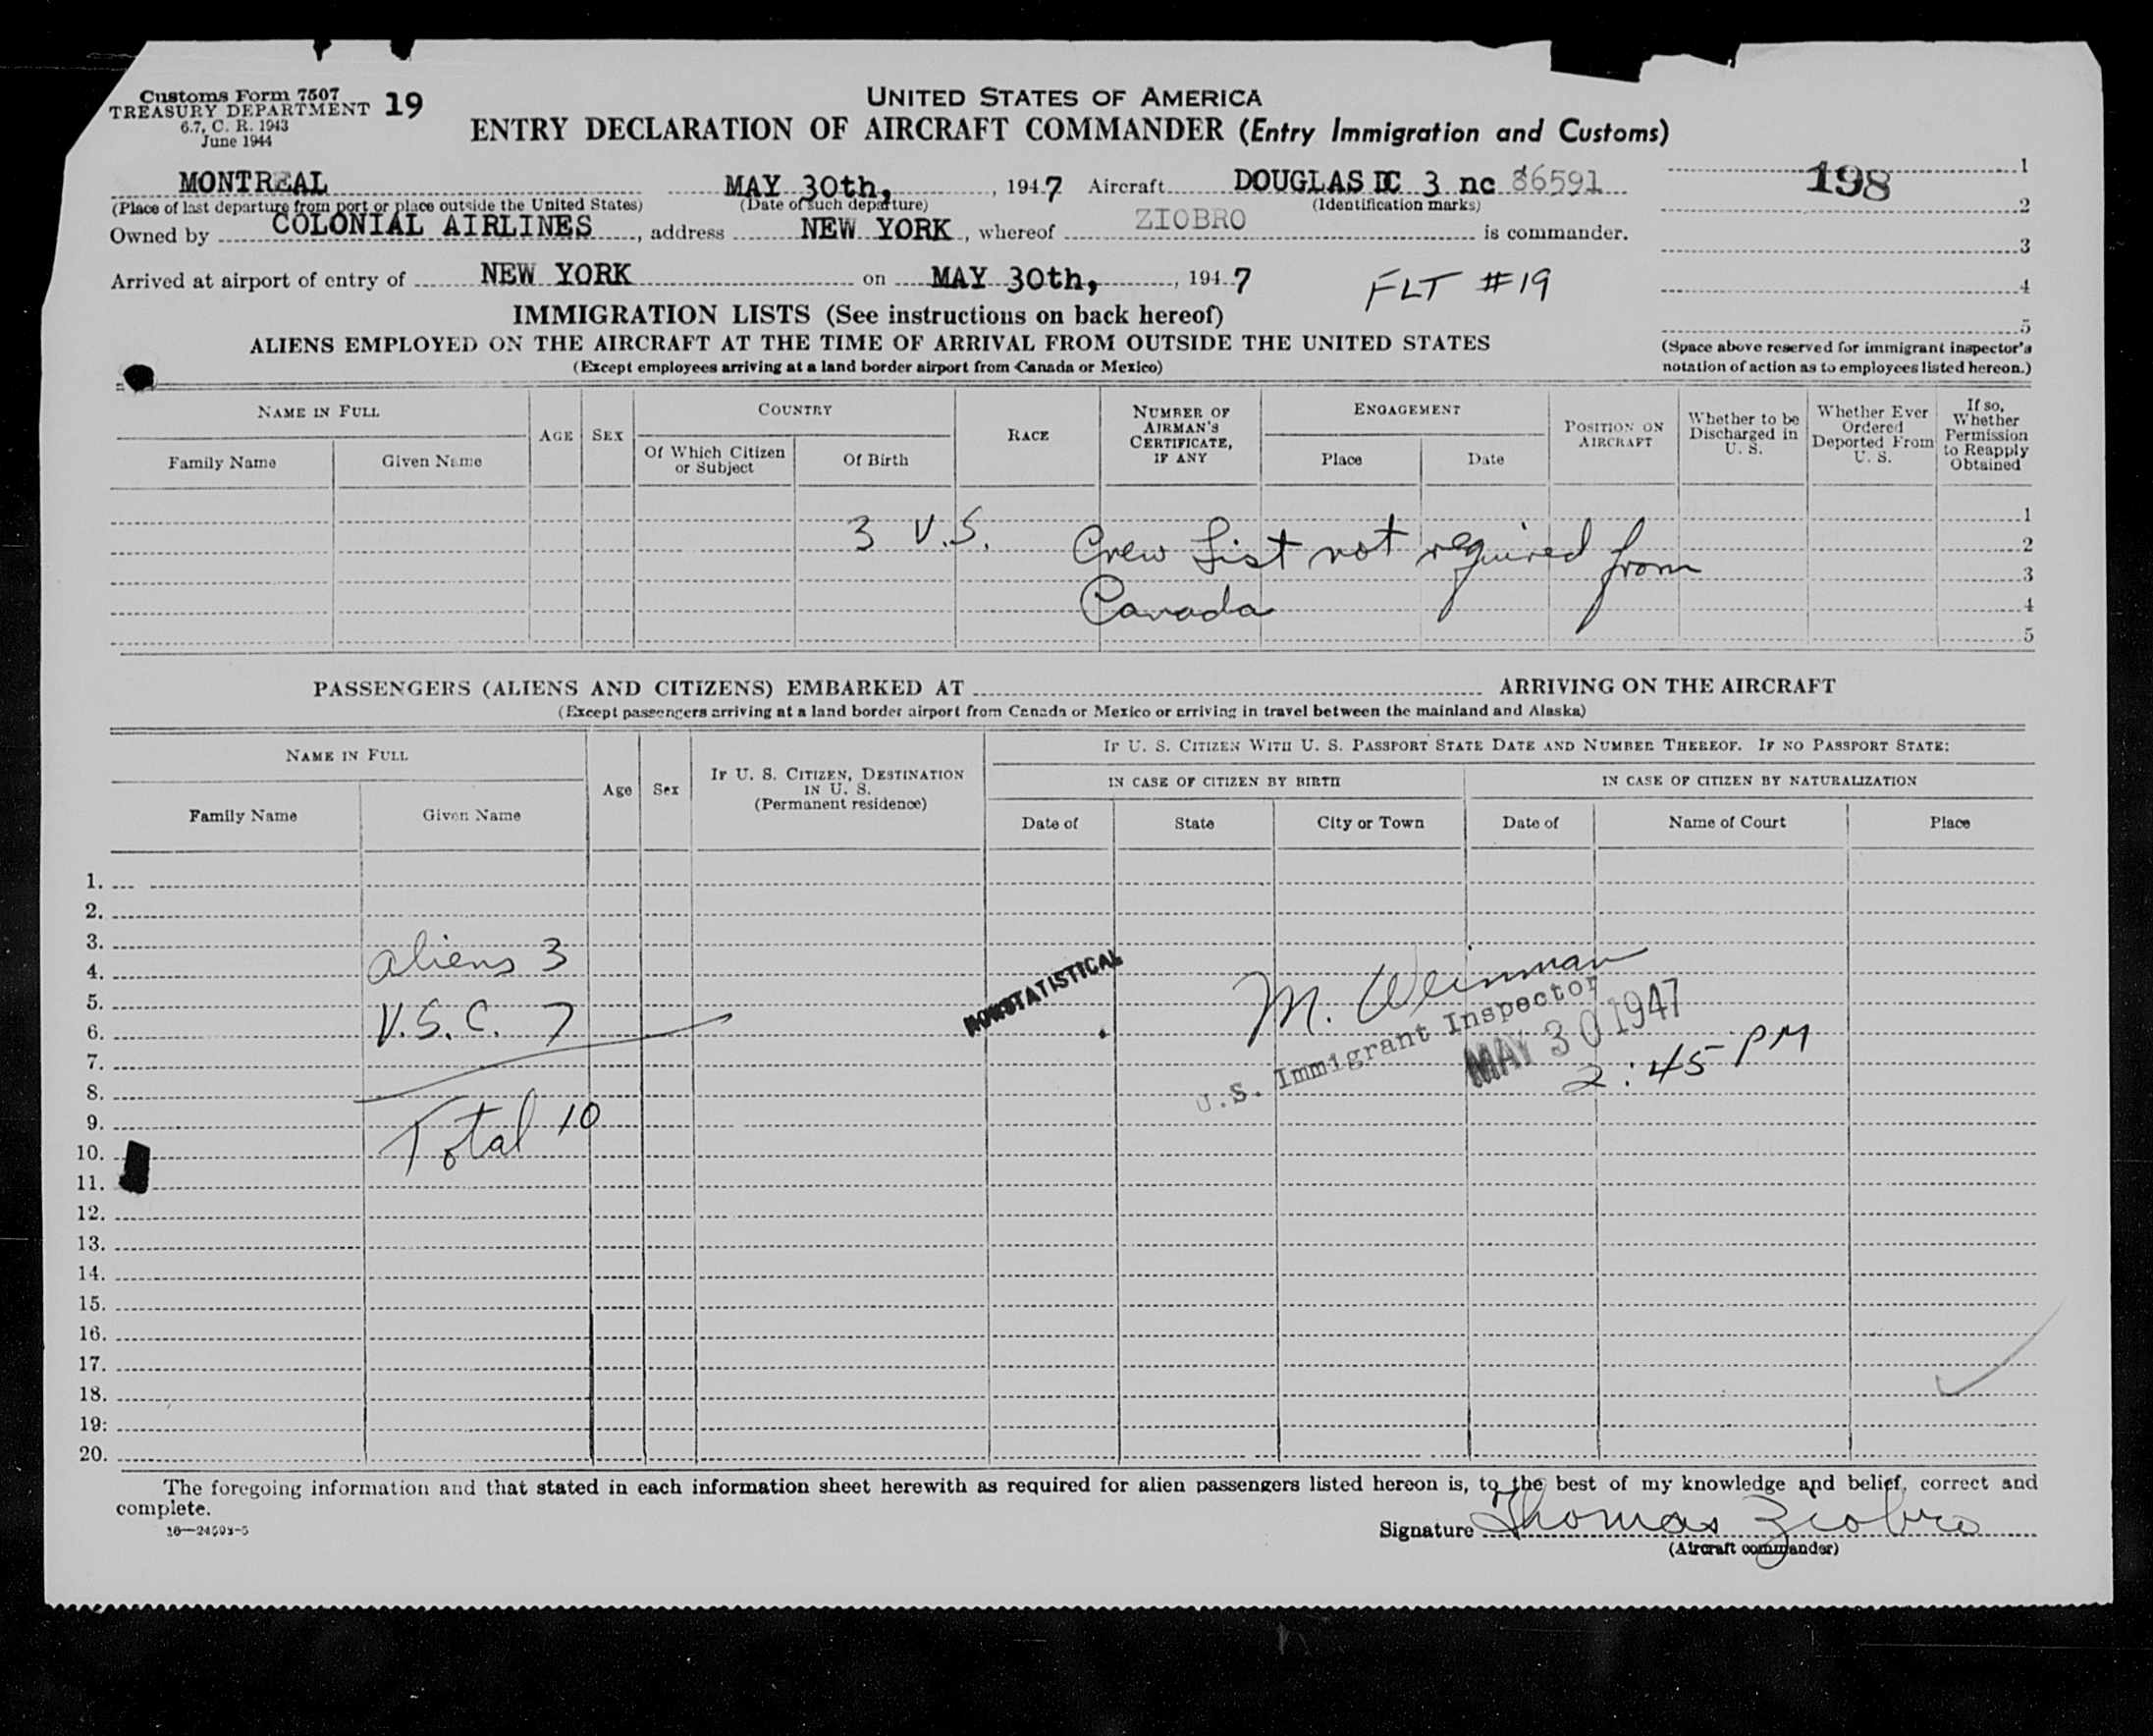 Customs Form 7507
TREASURY DEPARTMENT 19
6.7, C. R. 1943
June 1944
UNITED STATES OF AMERICA
ENTRY DECLARATION OF AIRCRAFT COMMANDER (Entry Immigration and Customs)
MONTREAL MAY 30th, , 1947 Aircraft DOUGLAS DC 3 nc 86591
(Place of last departure from port or place outside the United States) (Date of such departure) (Identification marks)
Owned by COLONIAL AIRLINES , address NEW YORK , whereof ZIOBRO is commander.
Arrived at airport of entry of NEW YORK on MAY 30th, , 1947 FLT #19
198
1
2
3
4
5
(Space above reserved for immigrant inspector's
notation of action as to employees listed hereon.)
IMMIGRATION LISTS (See instructions on back hereof)
ALIENS EMPLOYED ON THE AIRCRAFT AT THE TIME OF ARRIVAL FROM OUTSIDE THE UNITED STATES
(Except employees arriving at a land border airport from Canada or Mexico)
NAME IN FULL
Family Name Given Name
AGE SEX
COUNTRY
Of Which Citizen
or Subject
Of Birth
RACE
NUMBER OF
AIRMAN'S
CERTIFICATE,
IF ANY
ENGAGEMENT
Place Date
POSITION ON
AIRCRAFT
Whether to be
Discharged in
U. S.
Whether Ever
Ordered
Deported From
U. S.
If so,
Whether
Permission
to Reapply
Obtained
1
2
3
4
5
3 U.S. Crew List not required from
Canada
PASSENGERS (ALIENS AND CITIZENS) EMBARKED AT ARRIVING ON THE AIRCRAFT
(Except passengers arriving at a land border airport from Canada or Mexico or arriving in travel between the mainland and Alaska)
NAME IN FULL
Family Name Given Name
Age Sex
IF U. S. CITIZEN, DESTINATION
IN U. S.
(Permanent residence)
IF U. S. CITIZEN WITH U. S. PASSPORT STATE DATE AND NUMBER THEREOF. IF NO PASSPORT STATE:
IN CASE OF CITIZEN BY BIRTH IN CASE OF CITIZEN BY NATURALIZATION
Date of State City or Town Date of Name of Court Place
1.
2.
3.
4. aliens 3
5.
6. U.S.C. 7
7.
8.
9.
10. Total 10
11.
12.
13.
14.
15.
16.
17.
18.
19.
20.
NONSTATISTICAL
M. Weinman
U.S. Immigrant Inspector
MAY 30 1947
2:45 PM
The foregoing information and that stated in each information sheet herewith as required for alien passengers listed hereon is, to the best of my knowledge and belief, correct and
complete.
Signature Thomas Ziobro
(Aircraft commander)